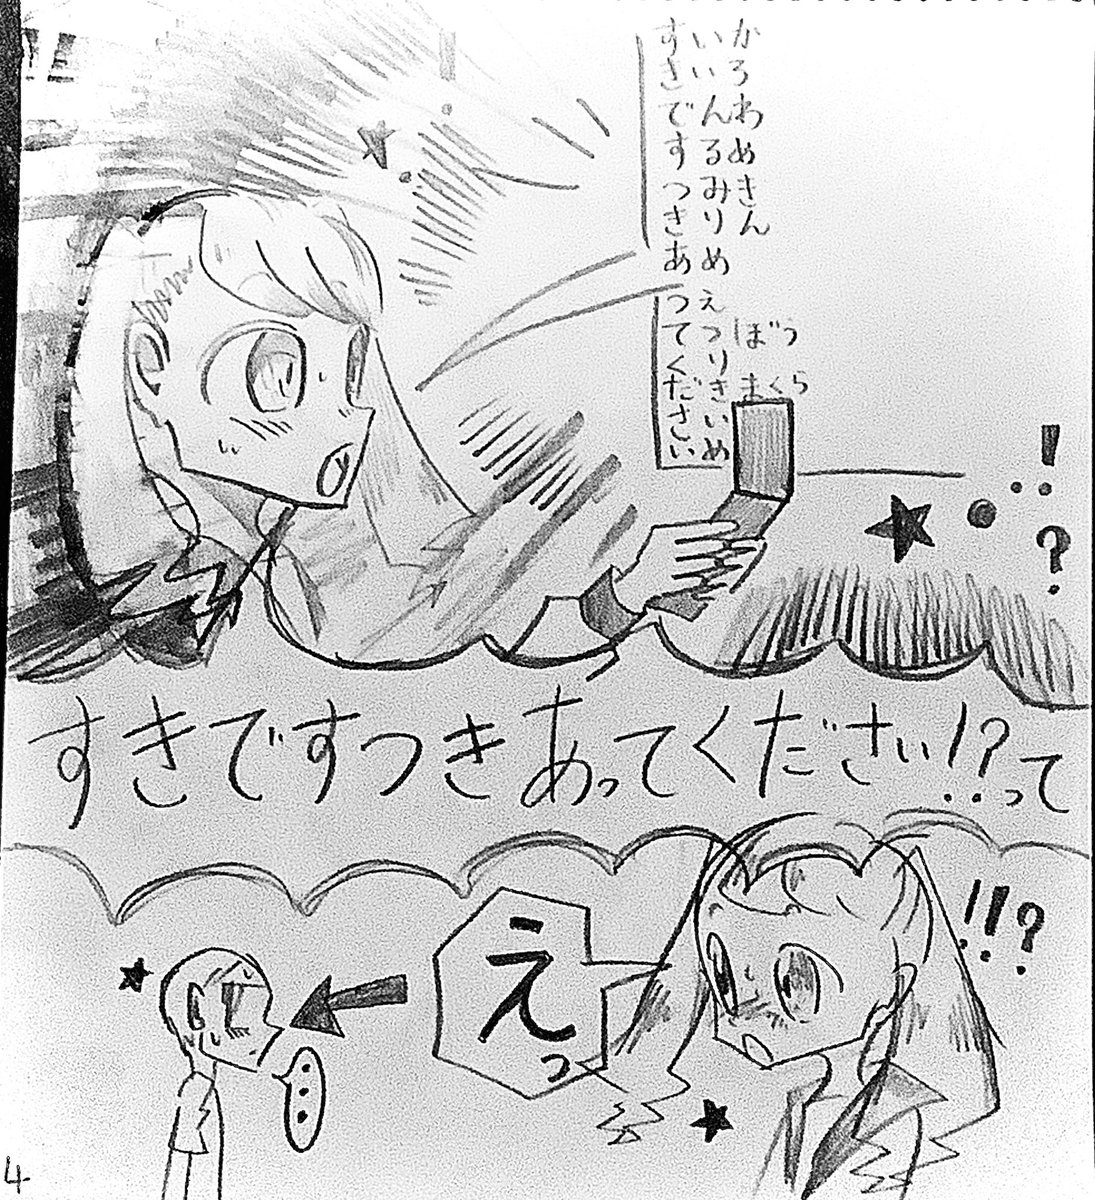 すいか
きいろ
でんわ
するめ
つみき
きりん
あめ
つえ
てつぼう
くり
だきまくら
さい
!
!
?
すきですつきあってください!?って
えっ
!!?
4